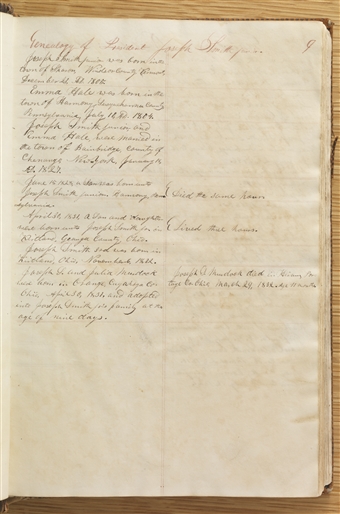 Genealogy of President Joseph Smith jun. 9
Joseph Smith junior was born in the
town of Sharon Windsor County Vermont,
December 23d AD. 1805.
Emma Hale was born in the
town of Harmony, Susquehannah County
Pensylvania, July 10th AD. 1804.
Joseph Smith junior and
Emma Hale were married in
the town of Bainbridge, County of
Chenango New York January 18
AD. 1827.
June 1828 a Son was born unto
Joseph Smith junior, Harmony Pen
sylvania. Died the same hour.
April 30, 1831, a Son and daughter
were born unto Joseph Smith jun. in Lived three hours.
Kirtland, Geauga County, Ohio.
Joseph Smith 3d was born in
Kirtland, Ohio, November 6 1832.
Joseph S. and Julia Murdock Joseph S. Murdock died in Hiram Por
was born in Orange, Cuyahoga Co. tage Co. Ohio March 1832. Age months
Ohio April 30, 1831, and adopted
into Joseph Smith jr's family at the
age of nine days.